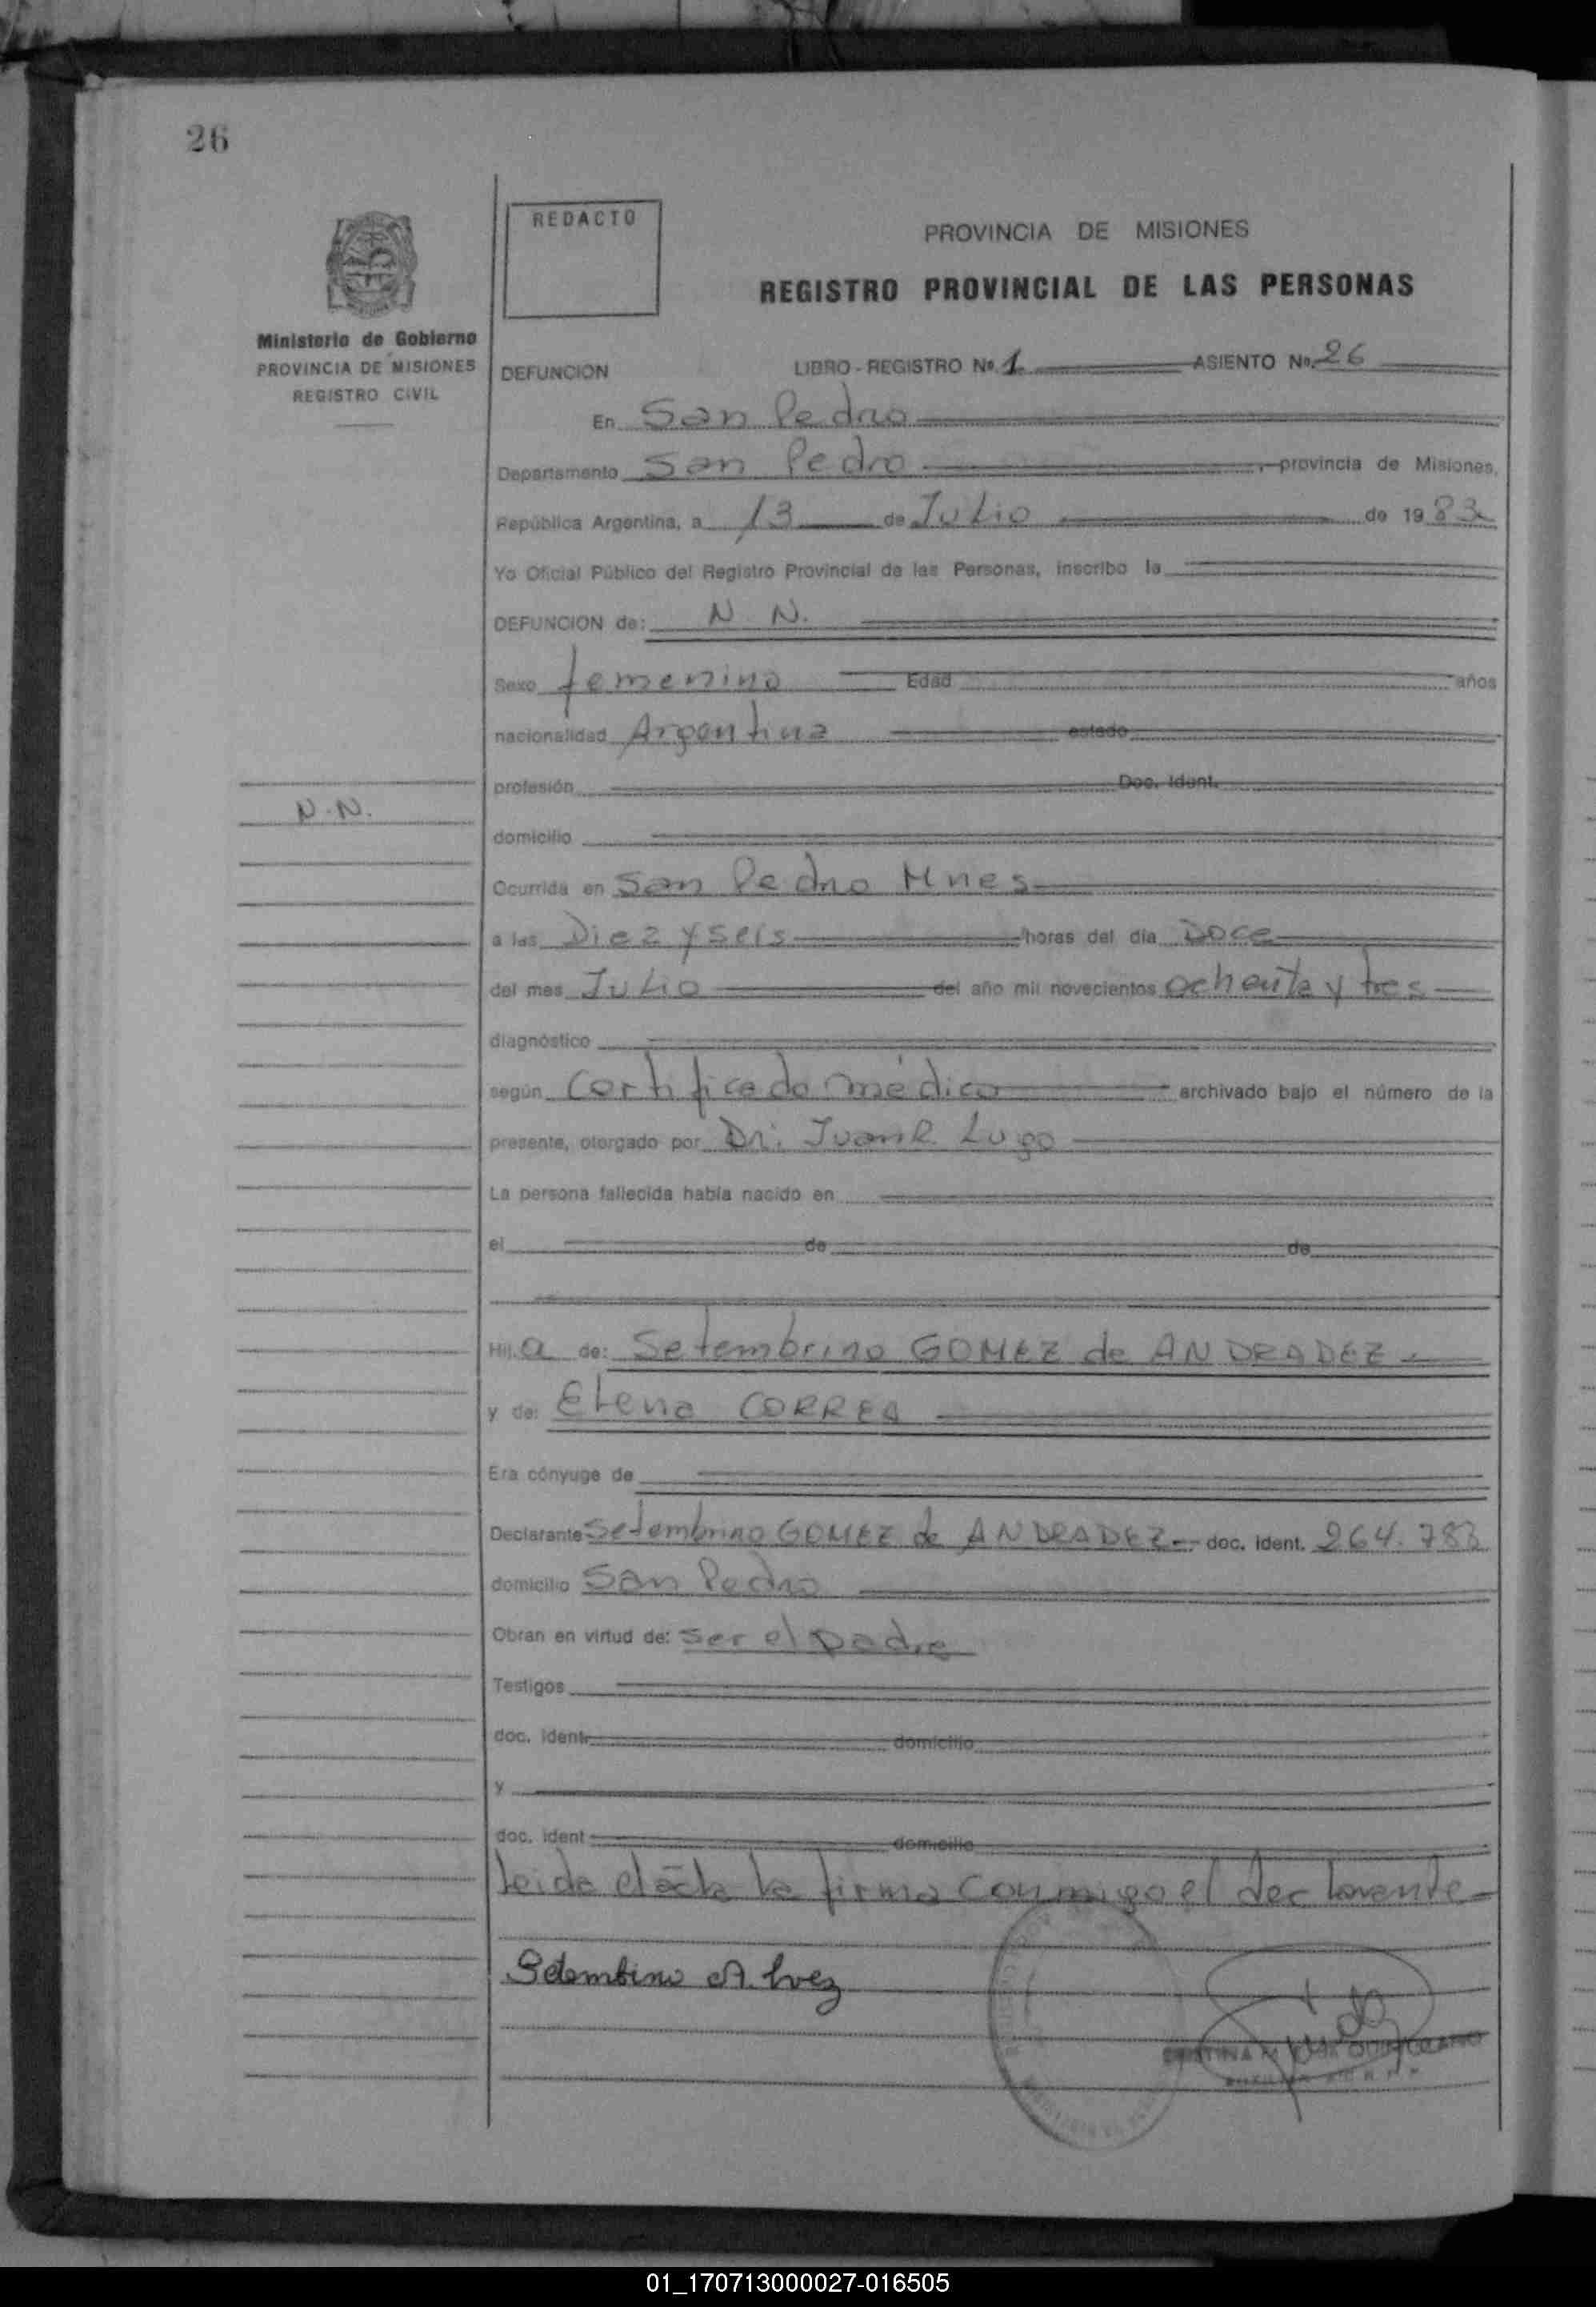 26
REDACTO
PROVINCIA DE MISIONES
REGISTRO PROVINCIAL DE LAS PERSONAS
Ministerio de Gobierno
PROVINCIA DE MISIONES
REGISTRO CIVIL
DEFUNCION LIBRO - REGISTRO Nº 1 ASIENTO Nº 26
En San Pedro
Departamento San Pedro , provincia de Misiones,
República Argentina, a 13 de Julio de 1983
Yo Oficial Público del Registro Provincial de las Personas, inscribo la
DEFUNCION de: N. N.
Sexo femenino Edad años
nacionalidad Argentina estado
profesión Doc. Ident.
N.N.
domicilio
Ocurrida en San Pedro Mnes
a las Diez y seis horas del día Doce
del mes Julio del año mil novecientos ochenta y tres
diagnóstico
según certificado médico archivado bajo el número de la
presente, otorgado por Dr. Juan R. Lugo
La persona fallecida había nacido en
el de de
Hija de: Setembrino GOMEZ de ANDRADEZ
y de: Elena CORREA
Era cónyuge de
Declarante Setembrino GOMEZ de ANDRADEZ doc. ident. 264.783
domicilio San Pedro
Obran en virtud de: ser el padre
Testigos
doc. ident. domicilio
y
doc. ident. domicilio
leida el acta la firma conmigo el declarante
01_170713000027-016505